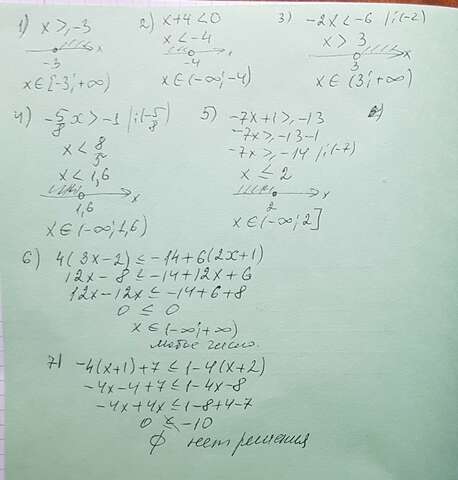 1) x ≥ -3
-3
x ∈ [-3; +∞)
2) x+4<0
x < -4
-4 x
x ∈ (-∞; -4)
3) -2x < -6 /:(-2)
x > 3
3 x
x ∈ (3; +∞)
4) -5/8 x > -1 /:(-5/8)
x < 8/5
x < 1,6
1,6 x
x ∈ (-∞; 1,6)
5) -7x+1 ≥ -13
-7x ≥ -13-1
-7x ≥ -14 /:(-7)
x ≤ 2
2 x
x ∈ (-∞; 2]
6) 4(3x-2) ≤ -14+6(2x+1)
12x-8 ≤ -14+12x+6
12x-12x ≤ -14+6+8
0 ≤ 0
x ∈ (-∞; +∞)
любое число.
7) -4(x+1)+7 ≤ 1-4(x+2)
-4x-4+7 ≤ 1-4x-8
-4x+4x ≤ 1-8+4-7
0 ≤ -10
∅ нет решения